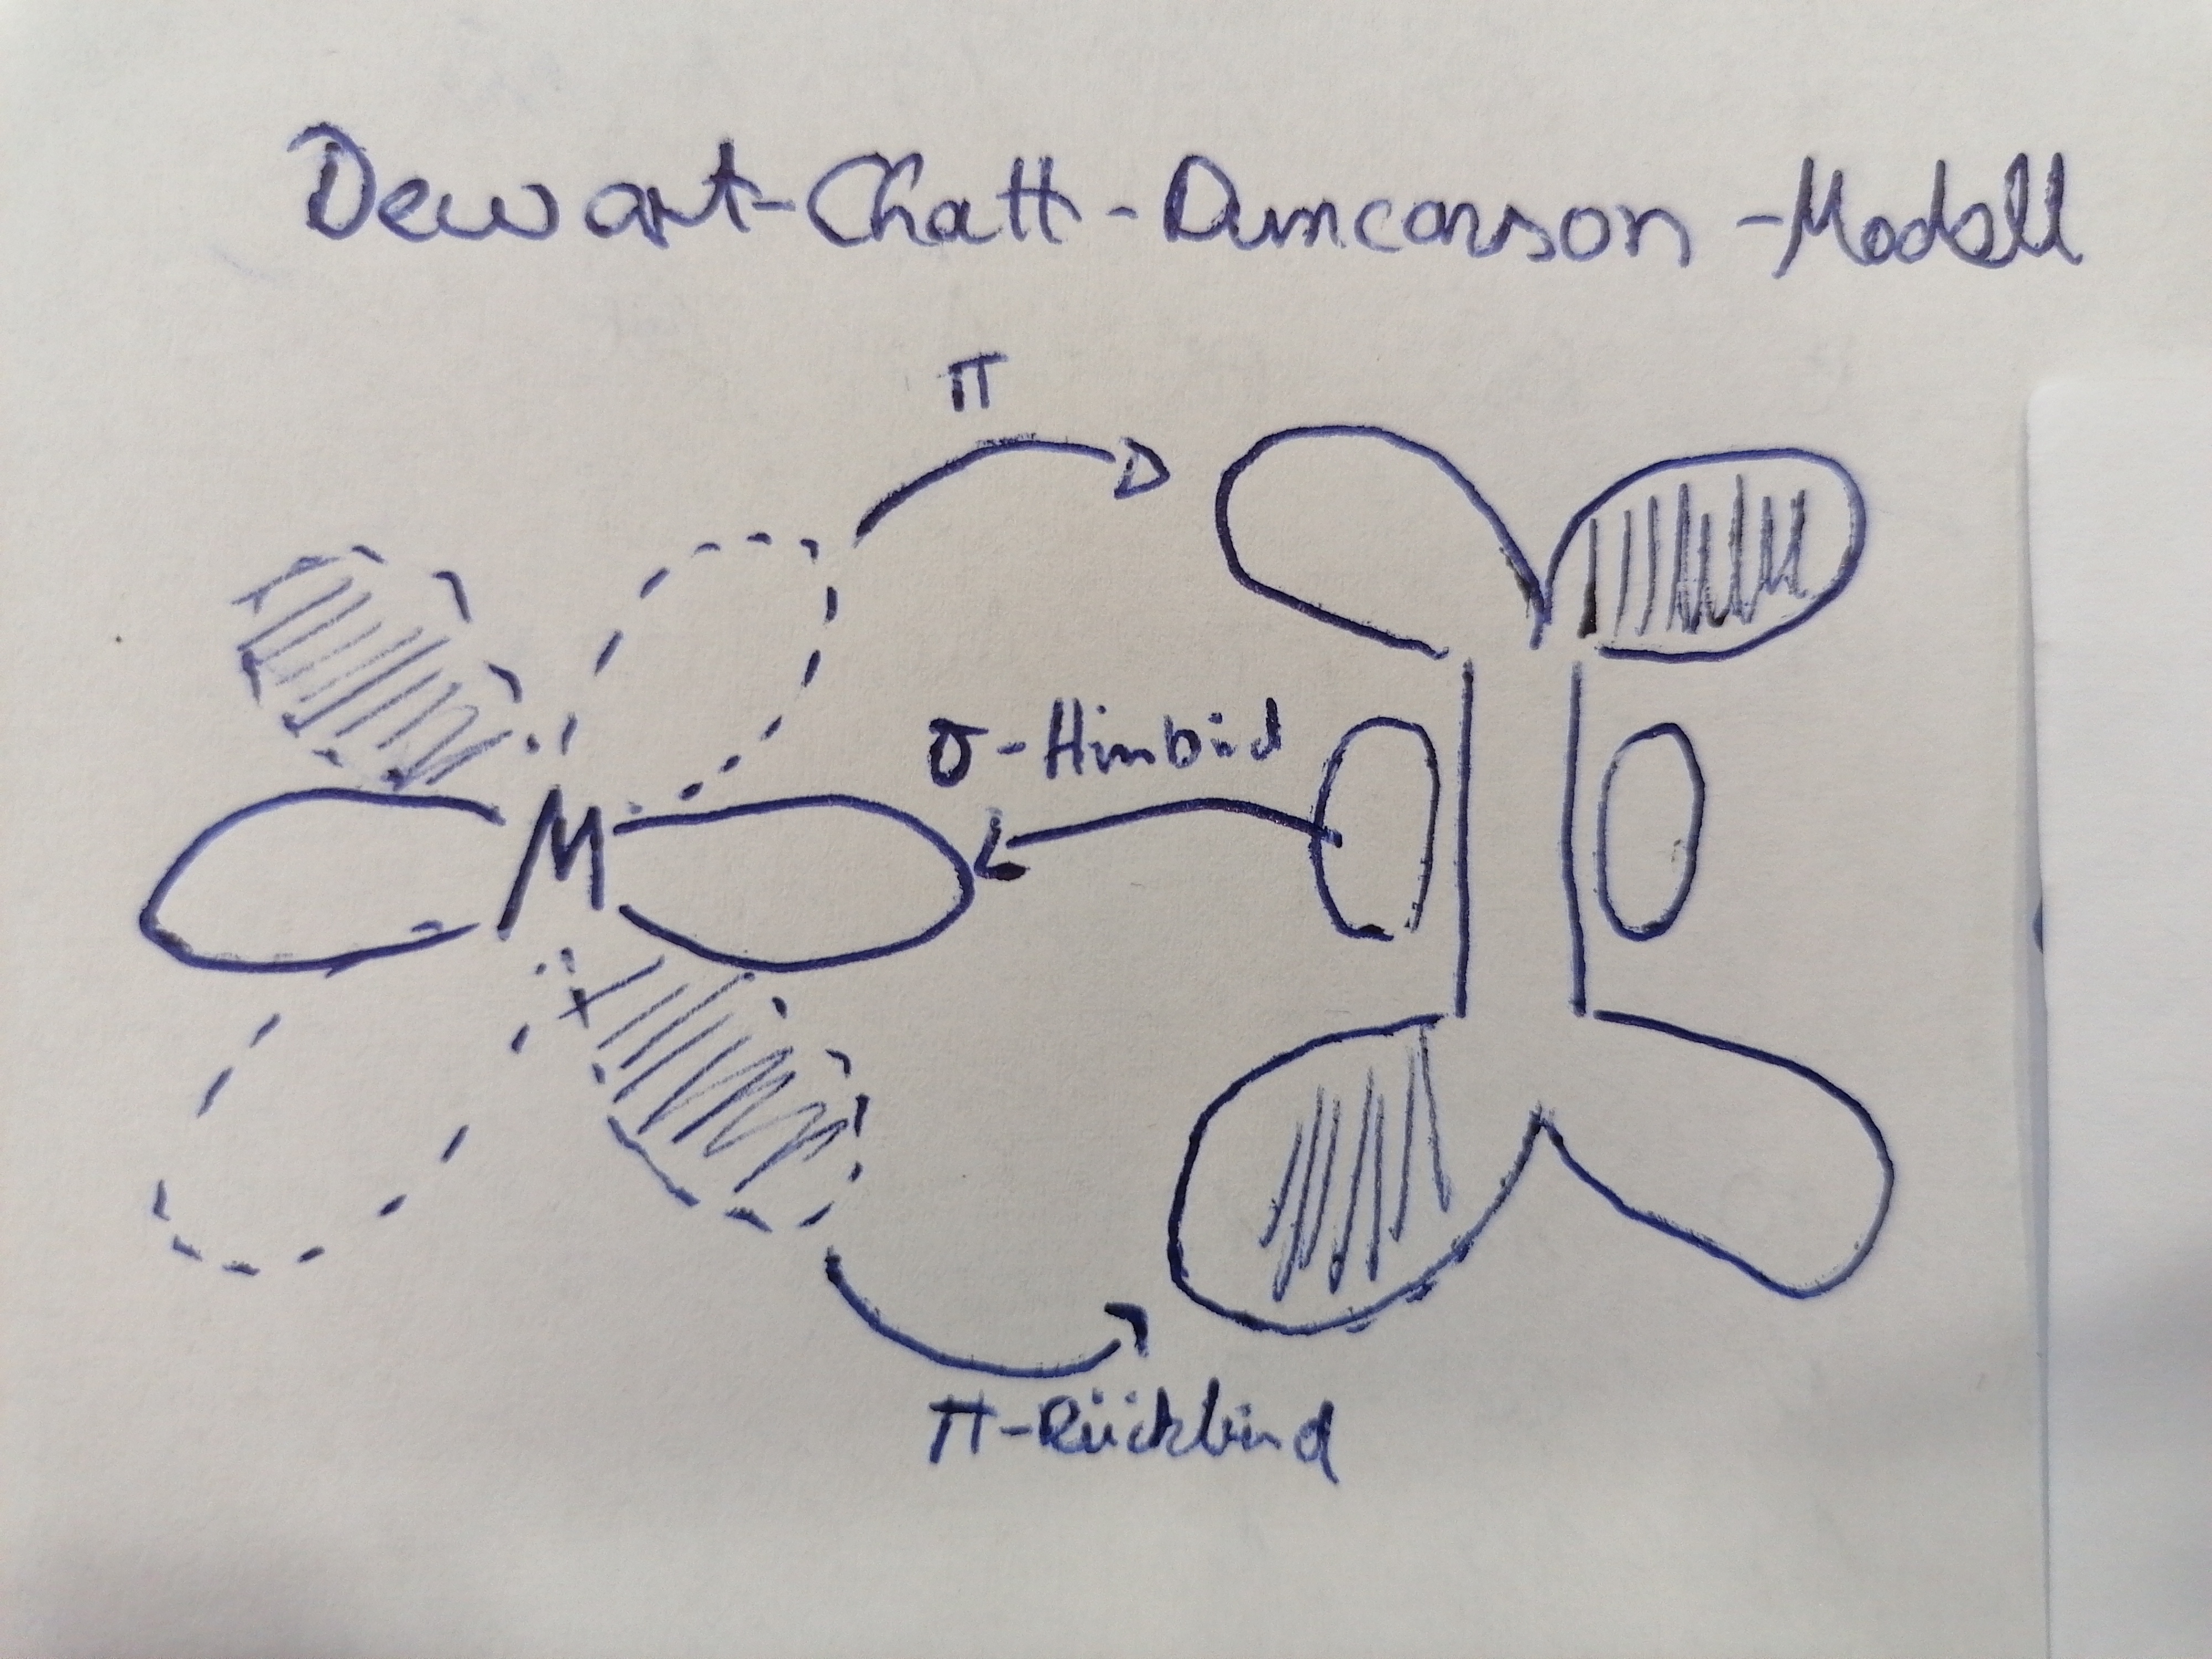 Dewart-Chatt-Duncanson-Modell
π
σ-Hinbind
M
π-Rückbind